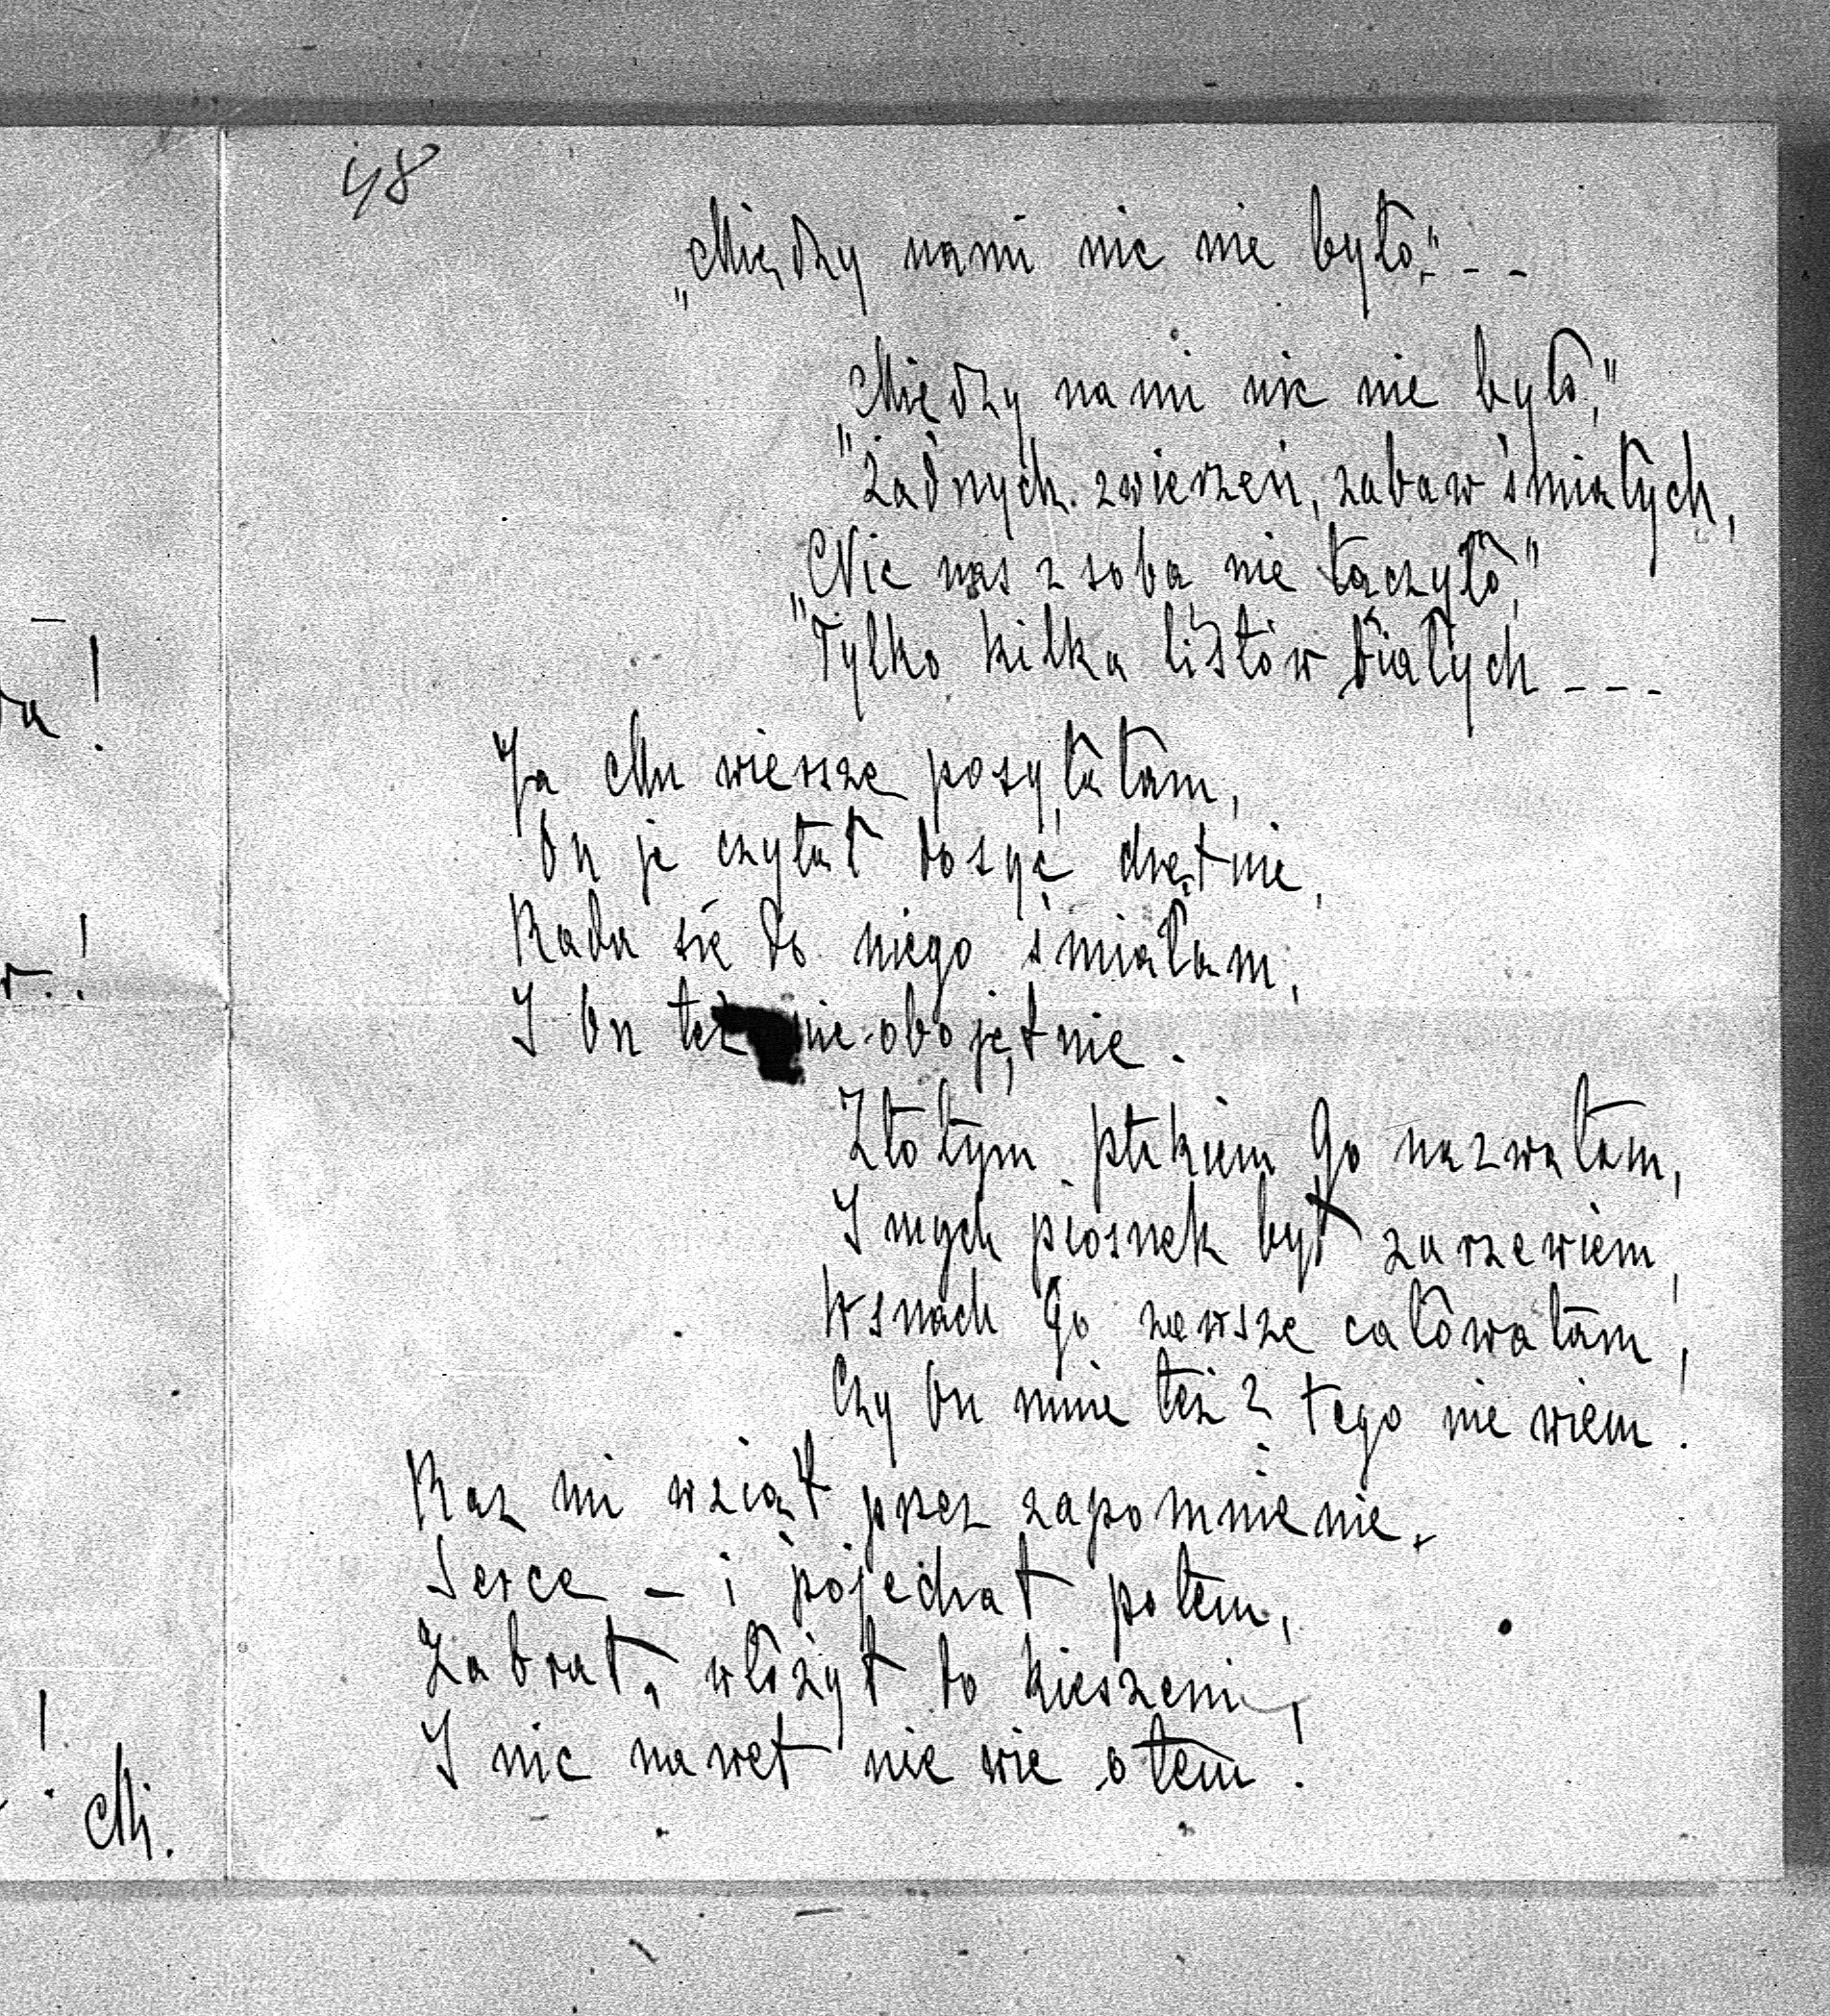 48
„Między nami nic nie było," - - -
„Między nami nic nie było,"
"Żadnych zwierzeń, zabaw śmiałych,
„Nic nas z soba nie łączyło,"
"Tylko kilka listów białych - - -
Ja Mu wiersze posyłałam,
On je czytał dosyć chętnie,
Rada się do niego śmiałam,
I On też nie obojętnie.
Złotym ptakiem Go nazwałam,
I mych piosnek był zarzewiem,
W snach Go zawsze całowałam,
Czy On mnie też? tego nie wiem!
Raz mi wziął przez zapomnienie,
Serce – i pojechał potem,
Zabrał, włożył do kieszeni,
I nic nawet nie wie o tem!
!
!
!
M.